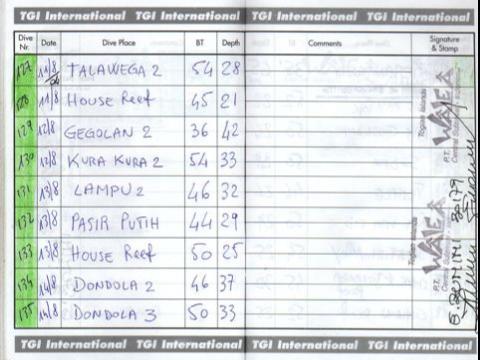 TGI International TGI International TGI International TGI International
Dive Nr. Date Dive Place BT Depth Comments Signature & Stamp
127 11/8 TALAWEGA 2 54 28
11/8 HOUSE REEF 45 21
129 12/8 GEGOLAN 2 36 42
130 12/8 KURA KURA 2 54 33
131 13/8 LAMPU 2 46 32
132 13/8 PASIR PUTIH 44 29
133 13/8 HOUSE REEF 50 25
134 14/8 DONDOLA 2 46 37
135 14/8 DONDOLA 3 50 33
Togian Islands
P.T. WALEA
Central Sulawesi
Togian Islands
P.T. WALEA
Central Sulawesi
TGI International TGI International TGI International TGI International